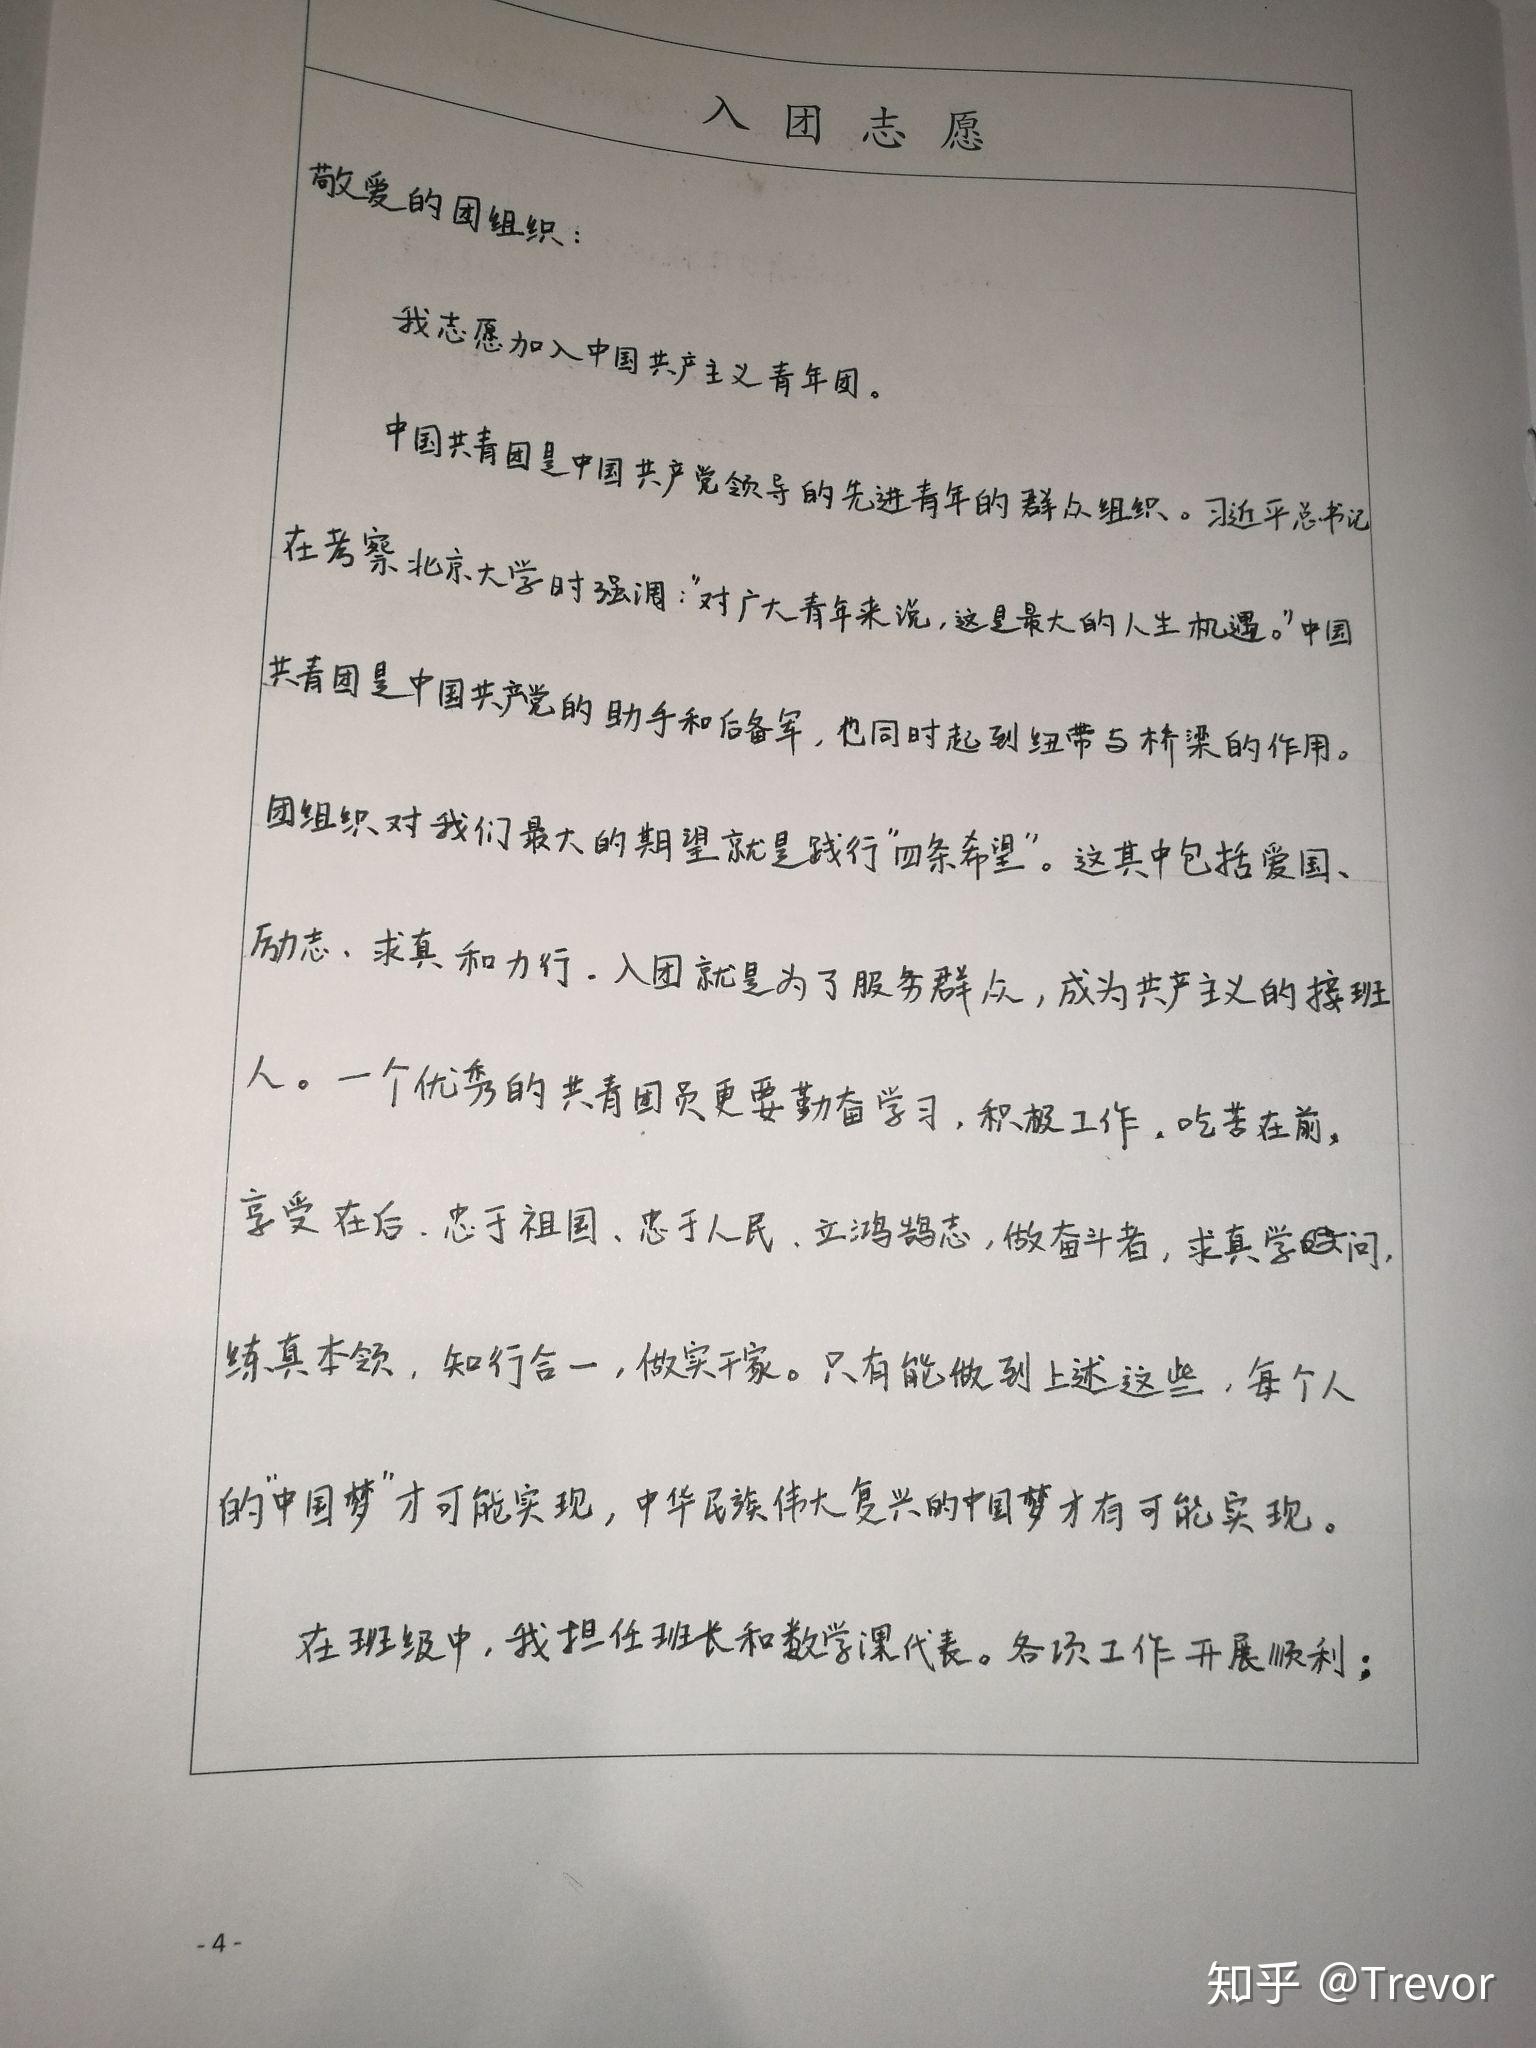 入团志愿
敬爱的团组织：
我志愿加入中国共产主义青年团。
中国共青团是中国共产党领导的先进青年的群众组织。习近平总书记
在考察北京大学时强调："对广大青年来说，这是最大的人生机遇。"中国
共青团是中国共产党的助手和后备军，也同时起到纽带与桥梁的作用。
团组织对我们最大的期望就是践行"四条希望"。这其中包括爱国、
励志、求真和力行．入团就是为了服务群众，成为共产主义的接班
人。一个优秀的共青团员更要勤奋学习，积极工作．吃苦在前，
享受在后、忠于祖国、忠于人民、立鸿鹄志，做奋斗者，求真学问，
练真本领，知行合一，做实干家。只有能做到上述这些，每个人
的"中国梦"才可能实现，中华民族伟大复兴的中国梦才有可能实现。
在班级中，我担任班长和数学课代表。各项工作开展顺利；
-4-
知乎 @Trevor